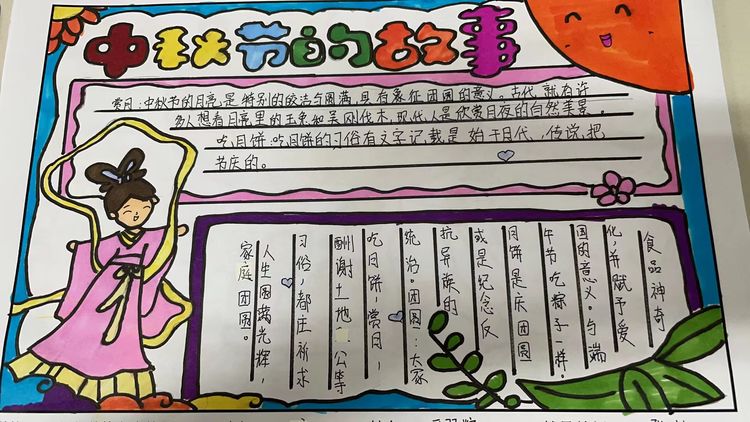 中秋节的故事
赏月:中秋节的月亮是特别的皎洁与圆满,具有象征团圆的意义。古代就有许
多人想着月亮里的玉兔和吴刚伐木,现代人是欣赏月夜的自然美景。
吃月饼:吃月饼的习俗有文字记载是始于明代,传说把
节庆的。
食品神奇
化,并赋予爱
国的意义。与端
午节吃粽子一样。
月饼是庆团圆
或是纪念反
抗异族的
统治。团圆:大家
吃月饼,赏月,
酬谢土地公等
习俗,都庄祈求
人生圆满光辉,
家庭团圆。